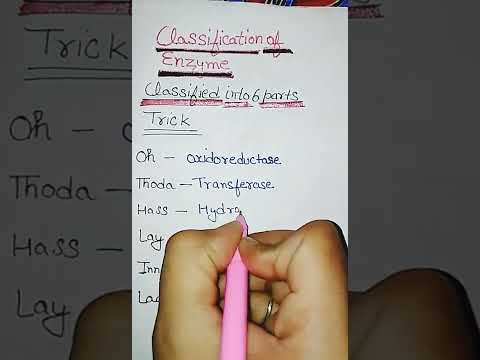 Classification of
Enzyme
Classified into 6 parts
Trick
Oh - oxidoreductase
Thoda - Transferase
Hass - Hydro
Lay
Inn
La